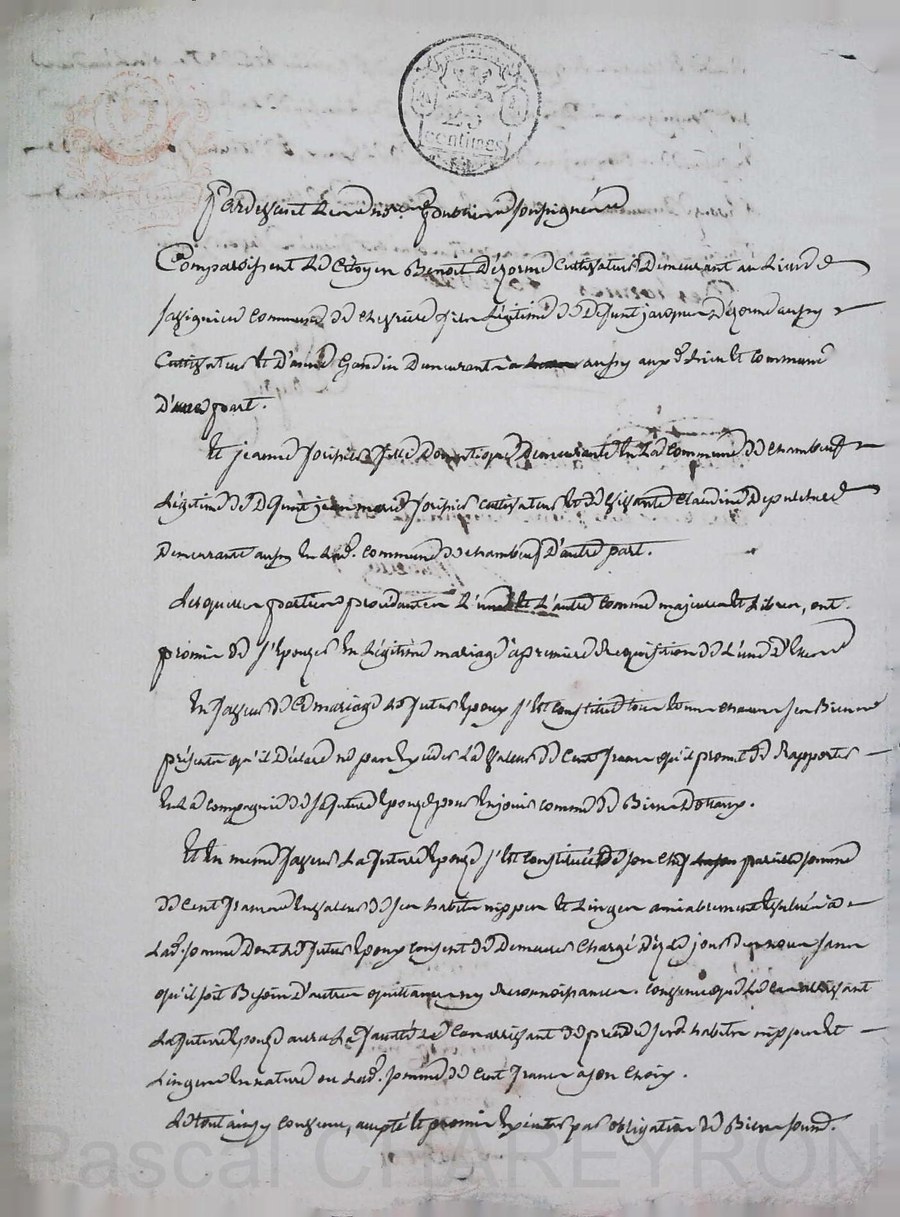 25
centimes
Pardevant Le notre. public soussigné
Comparoissent Le Citoyen Benoit Dejorme Cultivateur Demeurant au Lieu de
commune de chevriere fils Légitime de Defunt jacques Dejorme aussy
Cultivateur et D'anne Gandin Demeurante aussy aux d. Lieu et commune
D'une part.
Et jeanne fille Domestique Demeurante En La commune de chambeuf
Légitime de Defunt jean marie cultivateur et de vivante Claudine
Demeurante aussy En Lad. commune de chambeuf D'autre part.
Lesquelles parties procédantes L'une et L'autre comme majeures et Libres, ont
promis de s'Epouser En Légitime mariage à premiere Requisition de L'une D'Elles
En faveur de Ce mariage Le futur Epoux s'est constitué tous et un chacuns ses Biens
présents qu'il Déclare ne pas Exceder La Valeur de Cent francs qu'il promet de Rapporter
En La compagnie de sa future Epouse pour En jouir comme de Biens Dotaux.
Et En meme faveur La future Epouse s'est constituée de son Chef pareille somme
de Cent francs En valeur de ses habits nippes et Linges amiablement Evalués à
Lad. somme Dont Le futur Epoux Consent de Demeurer Chargé Dès Le jour Des noces sans
qu'il soit Besoin D'autres quittances ny Reconnoissances. Convenu que Le Cas arrivant
La future Epouse aura La faculté Le Cas arrivant de prendre ses habits nippes et
Linges En nature ou Lad. somme de Cent francs a son Choix.
Le tout ainsy Convenu, accepté et promis Exécuter par obligation de Biens soumis.
Pascal CHAREYRON